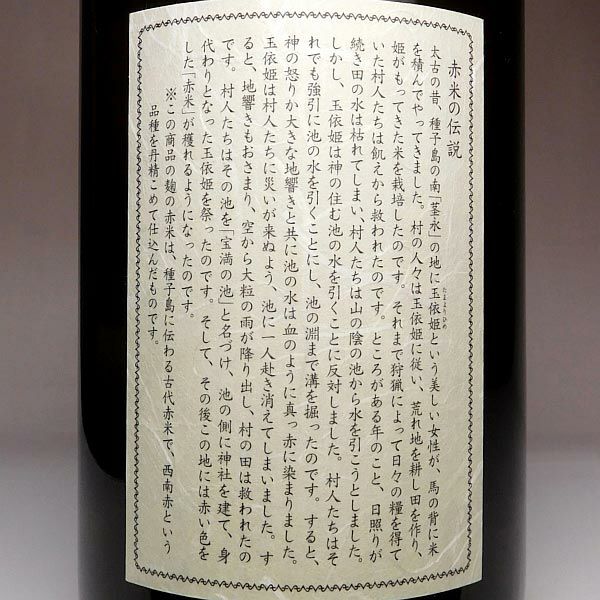 赤米の伝説
太古の昔、種子島の南「茎永」の地に玉依姫という美しい女性が、馬の背に米
たまよりひめ
を積んでやってきました。村の人々は玉依姫に従い、荒れ地を耕し田を作り、
姫がもってきた米を栽培したのです。それまで狩猟によって日々の糧を得て
いた村人たちは飢えから救われたのです。ところがある年のこと、日照りが
続き田の水は枯れてしまい、村人たちは山の陰の池から水を引こうとしました。
しかし、玉依姫は神の住む池の水を引くことに反対しました。村人たちはそ
れでも強引に池の水を引くことにし、池の淵まで溝を掘ったのです。すると、
神の怒りか大きな地響きと共に池の水は血のように真っ赤に染まりました。
玉依姫は村人たちに災いが来ぬよう、池に一人赴き消えてしまいました。す
ると、地響きもおさまり、空から大粒の雨が降り出し、村の田は救われたの
です。村人たちはその池を「宝満の池」と名づけ、池の側に神社を建て、身
代わりとなった玉依姫を祭ったのです。そして、その後この地には赤い色を
した「赤米」が穫れるようになったのです。
※この商品の麹の赤米は、種子島に伝わる古代赤米で、西南赤という
品種を丹精こめて仕込んだものです。